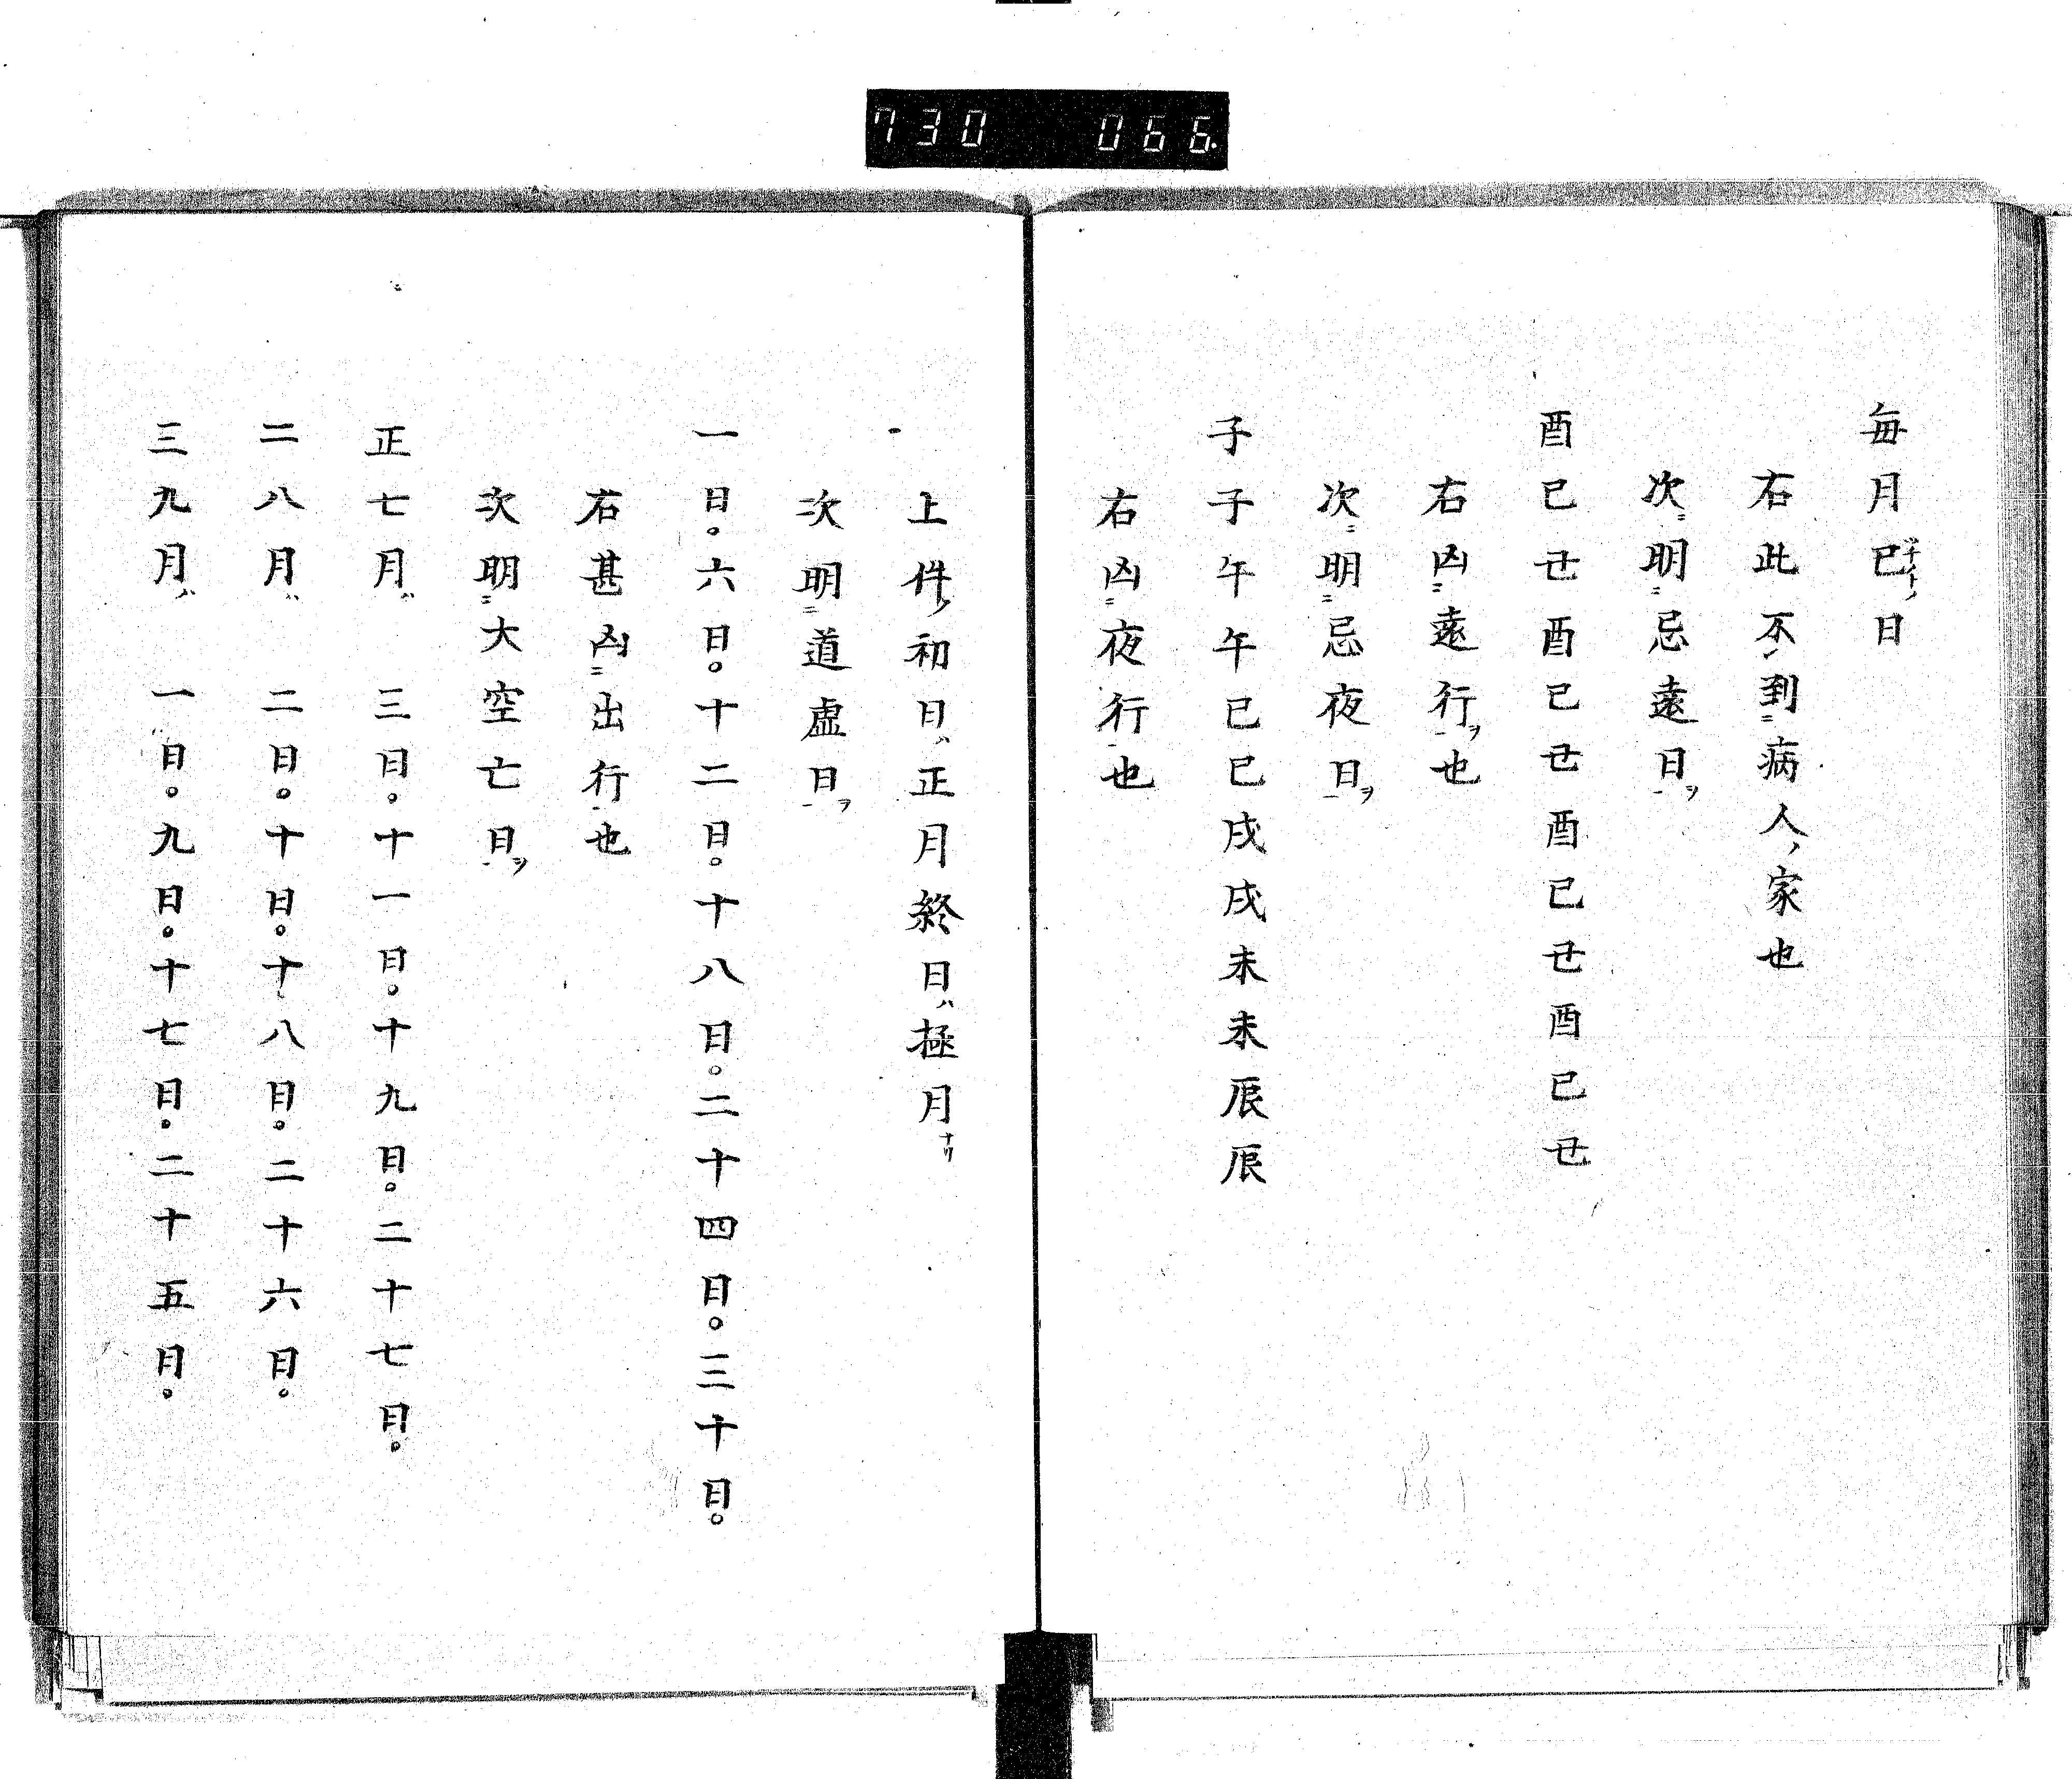 730 066
毎月巳日
右此不到病人ノ家也
次ニ明ニ忌遠日ヲ
酉巳丑酉巳丑酉巳丑酉巳丑
右凶遠行ヲ也
次ニ明ニ忌夜日ヲ
子子午午巳巳戌戌未未辰辰
右凶夜行也
上件ノ初日ハ正月終日ハ極月ナリ
次明道虚日ヲ
一日。六日。十二日。十八日。二十四日。三十日。
右甚凶出行也
次明大空亡日ヲ
正七月ハ 三日。十一日。十九日。二十七日。
二八月ハ 二日。十日。十八日。二十六日。
三九月ハ 一日。九日。十七日。二十五日。